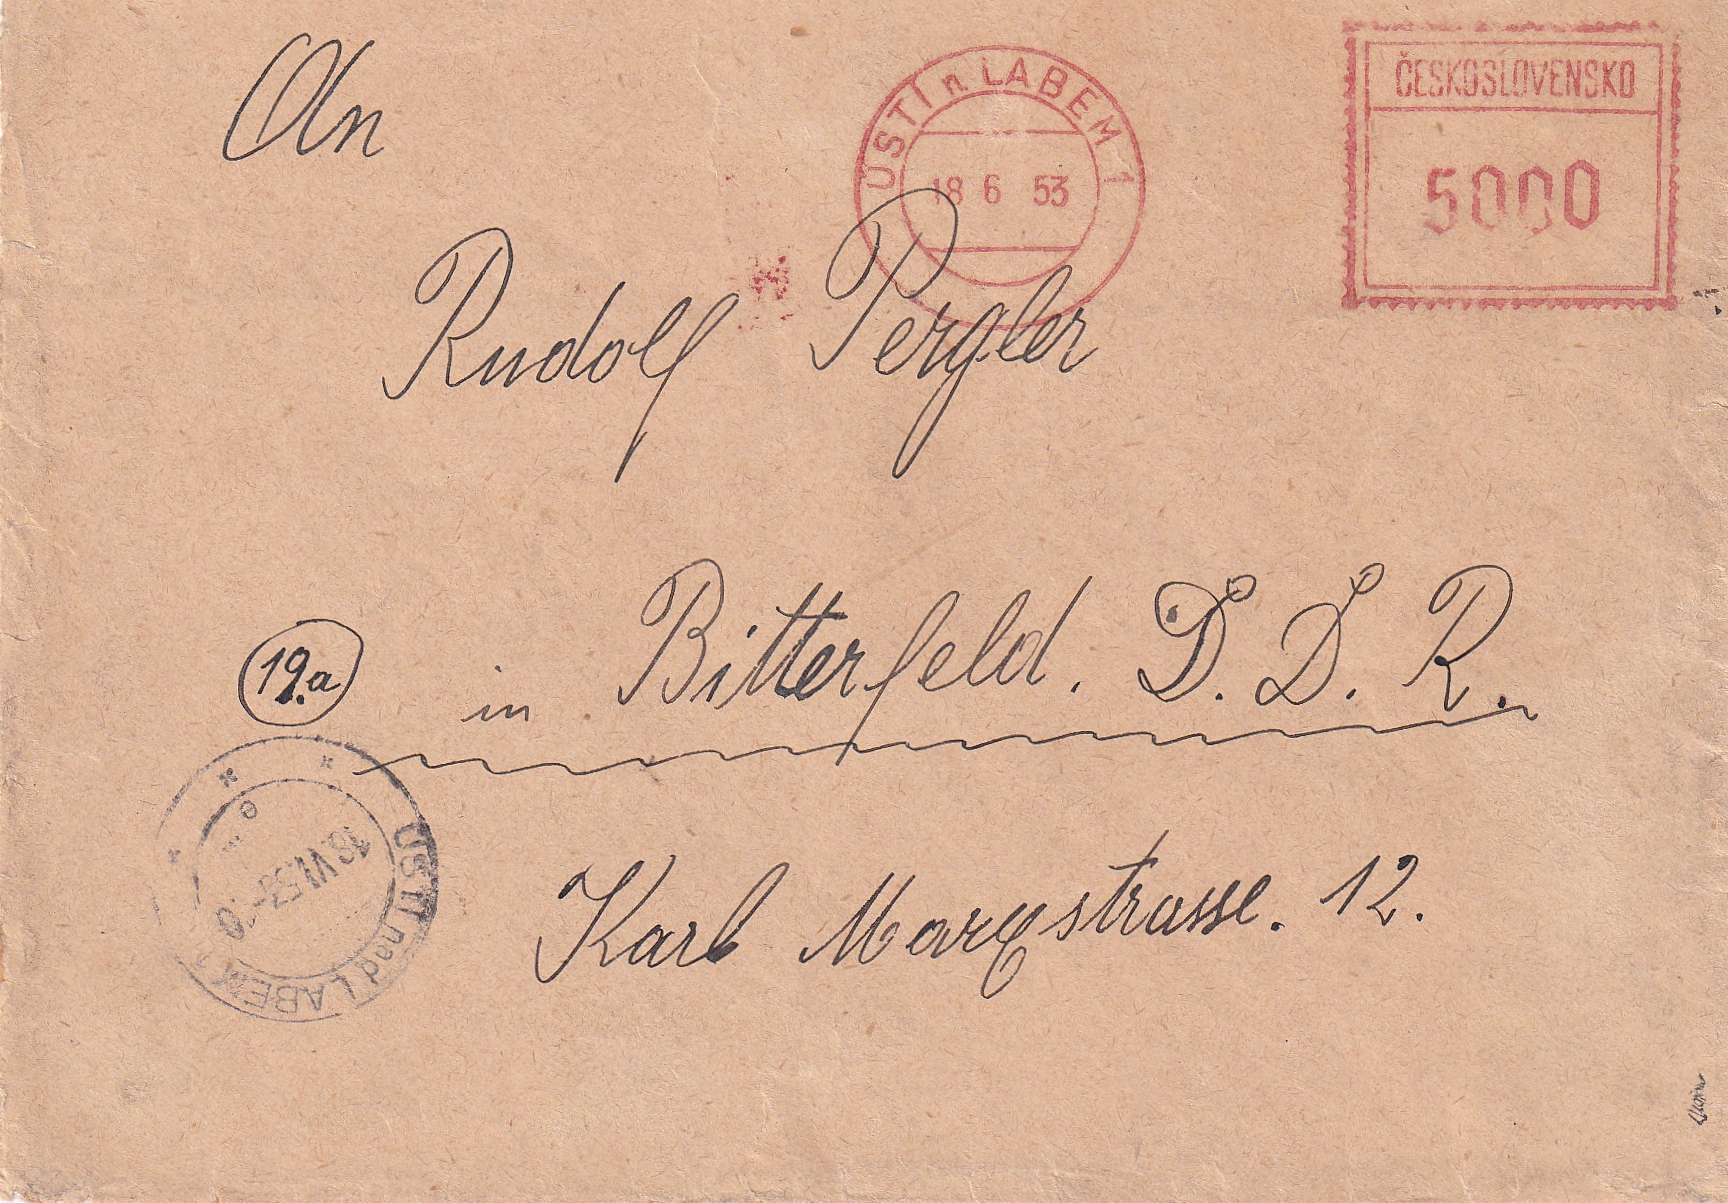 ÚSTÍ n. LABEM 1
18 6 53
ČESKOSLOVENSKO
5000
An
Rudolf Pergler
19.a
in Bitterfeld. D. D. R.
Karl Marxstrasse. 12.
ÚSTÍ nad LABEM
18.VI.53